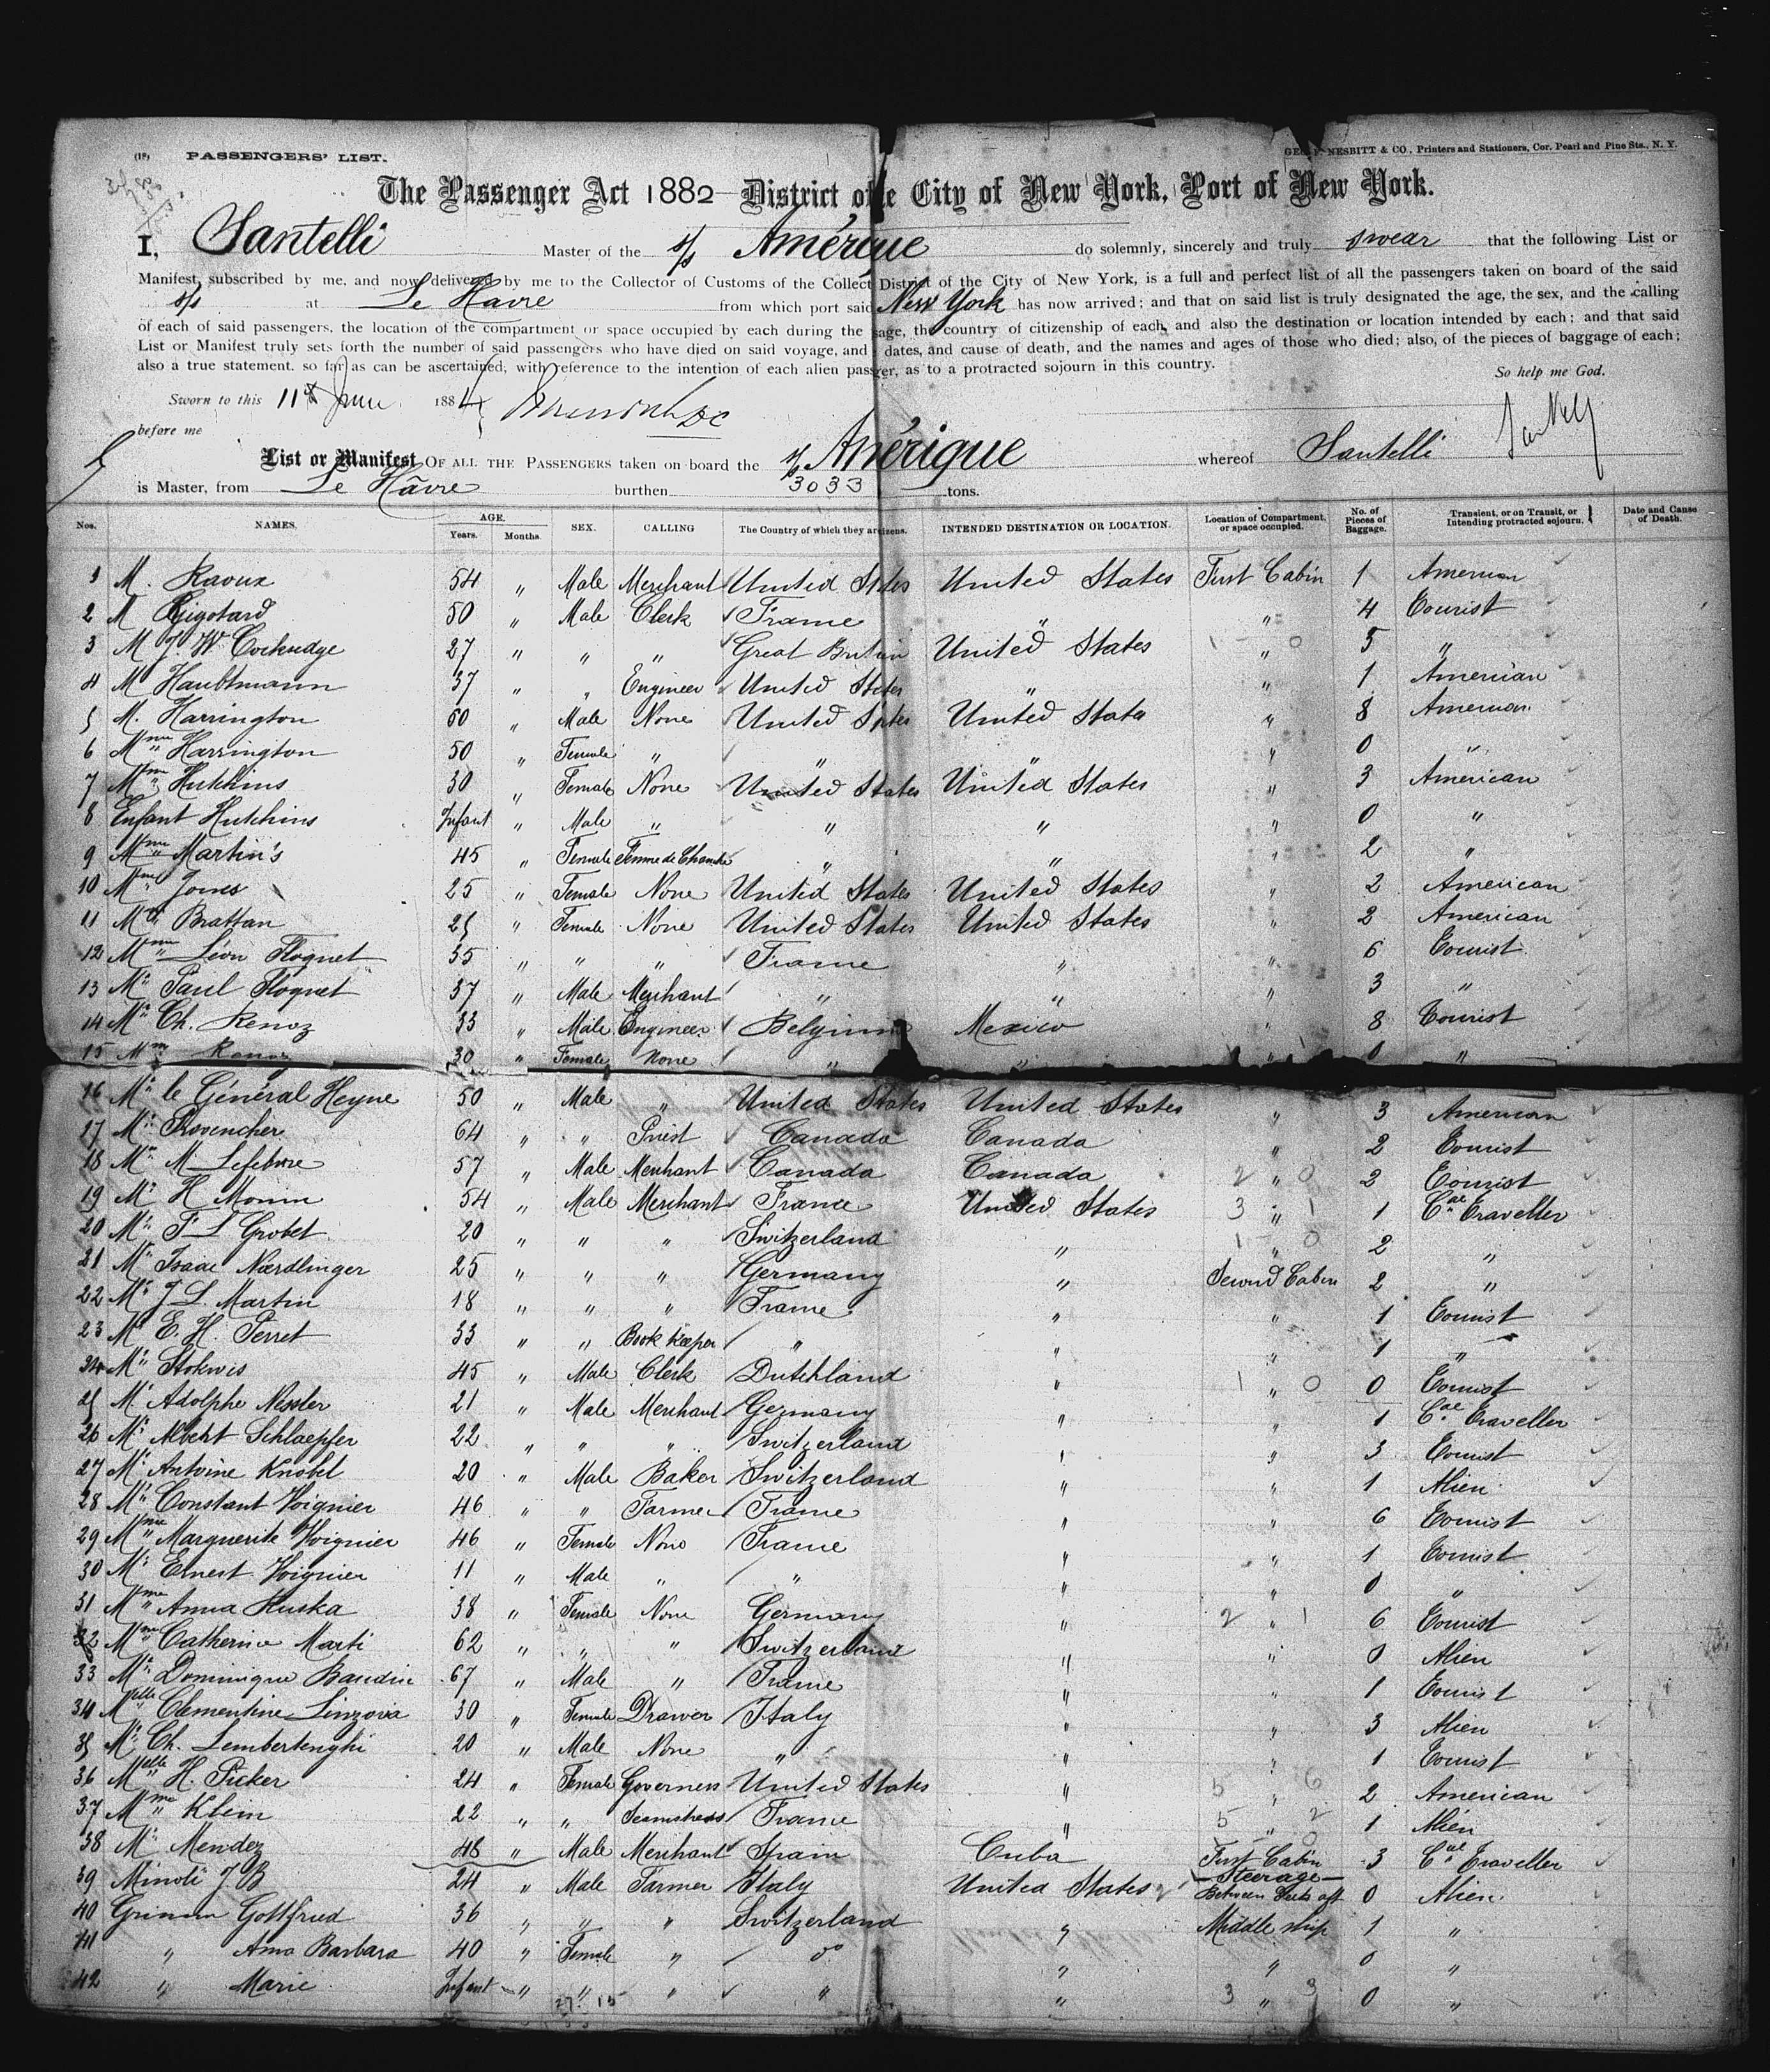 (18) PASSENGERS' LIST.
GEO. F. NESBITT & CO., Printers and Stationers, Cor. Pearl and Pine Sts., N. Y.
The Passenger Act 1882 District of e City of New York, Port of New York.
I, Santelli Master of the s/s Amérique do solemnly, sincerely and truly swear that the following List or
Manifest, subscribed by me, and now delivered by me to the Collector of Customs of the Collect District of the City of New York, is a full and perfect list of all the passengers taken on board of the said
s/s at Le Havre from which port said New York has now arrived; and that on said list is truly designated the age, the sex, and the calling
of each of said passengers, the location of the compartment or space occupied by each during the sage, the country of citizenship of each, and also the destination or location intended by each; and that said
List or Manifest truly sets forth the number of said passengers who have died on said voyage, and dates, and cause of death, and the names and ages of those who died; also, of the pieces of baggage of each;
also a true statement, so far as can be ascertained, with reference to the intention of each alien passer, as to a protracted sojourn in this country.
So help me God.
Sworn to this 11th June 1884
before me
List or Manifest OF ALL THE PASSENGERS taken on board the s/s Amérique whereof Santelli
is Master, from Le Hâvre burthen 3033 tons.
Nos. NAMES. AGE. Years. Months. SEX. CALLING The Country of which they are izens. INTENDED DESTINATION OR LOCATION. Location of Compartment, or space occupied. No. of Pieces of Baggage. Transient, or on Transit, or Intending protracted sojourn. Date and Cause of Death.
1 M. Raoux 54 " Male Merchant United States United States First Cabin 1 American
2 M Gigotard 50 " Male Clerk France " " 4 Tourist
3 M J. W 27 " " " Great Britain United States " 5 "
4 M Haubtmann 37 " " Engineer United States " " 1 American
5 M. Harrington 60 " Male None United States United States " 8 American
6 Mme Harrington 50 " Female " " " " 0 "
7 Mme Hutchins 30 " Female None United States United States " 3 American
8 Enfant Hutchins Infant " Male " " " " 0 "
9 Mme Martin's 45 " Female Femme de Chambre " " " 2 "
10 Mme Jones 25 " Female None United States United States " 2 American
11 Brattan 25 " Female None United States United States " 2 American
12 Mme Léon Floquet 35 " " " France " " 6 Tourist
13 Mr Paul Floquet 37 " Male Merchant " " " 3 "
14 Mr Ch. Renoz 33 " Male Engineer Belgium Mexico " 8 Tourist
15 Mme Renoz 30 " Female None " " " 0 "
16 Mr le Général Heyne 50 " Male " United States United States " 3 American
17 Mr Provencher 64 " " Priest Canada Canada " 2 Tourist
18 Mr M Lefebvre 57 " Male Merchant Canada Canada " 2 Tourist
19 Mr H Monin 54 " Male Merchant France United States " 1 Cal Traveller
20 Mr F L Grobet 20 " " " Switzerland " " 2 "
21 Mr Isaac Nœrdlinger 25 " " " Germany " Second Cabin 2 "
22 Mr J L. Martin 18 " " " France " " 1 Tourist
23 Mr E. H. Perret 33 " " Book Keeper " " " 1 "
24 Mr Stokvis 45 " Male Clerk Dutchland " " 0 Tourist
25 Mr Adolphe Nessler 21 " Male Merchant Germany " " 1 Cal Traveller
26 Mr Albert Schlaepfer 22 " " " Switzerland " " 3 Tourist
27 Mr Antoine Knobel 20 " Male Baker Switzerland " " 1 Alien
28 Mr Constant Voignier 46 " " Farmer France " " 6 Tourist
29 Mme Marguerite Voignier 46 " Female None France " " 1 Tourist
30 Mr Ernest Voignier 11 " Male " " " " 0 "
31 Mme Anna Huska 38 " Female None Germany " " 6 Tourist
32 Mme Catherine Marti 62 " " " Switzerland " " 0 Alien
33 Mr Dominique Baudin 67 " Male " France " " 1 Tourist
34 Melle Clementine Linzovia 30 " Female Drawer Italy " " 3 Alien
35 Mr Ch. Lembertenghi 20 " Male None " " " 1 Tourist
36 Melle H. Picker 24 " Female Governess United States " " 2 American
37 Mme Klein 22 " " Seamstress France " " 1 Alien
38 Mr Mendez 48 " Male Merchant Spain Cuba First Cabin 3 Cal Traveller
39 Minoli J. B 24 " Male Farmer Italy United States Steerage Between Decks aft 0 Alien
40 Grimm Gottfried 36 " " " Switzerland " Middle ship 1 "
41 " Anna Barbara 40 " Female " do " " 0 "
42 " Marie Infant " " " " " " 0 "
27 15